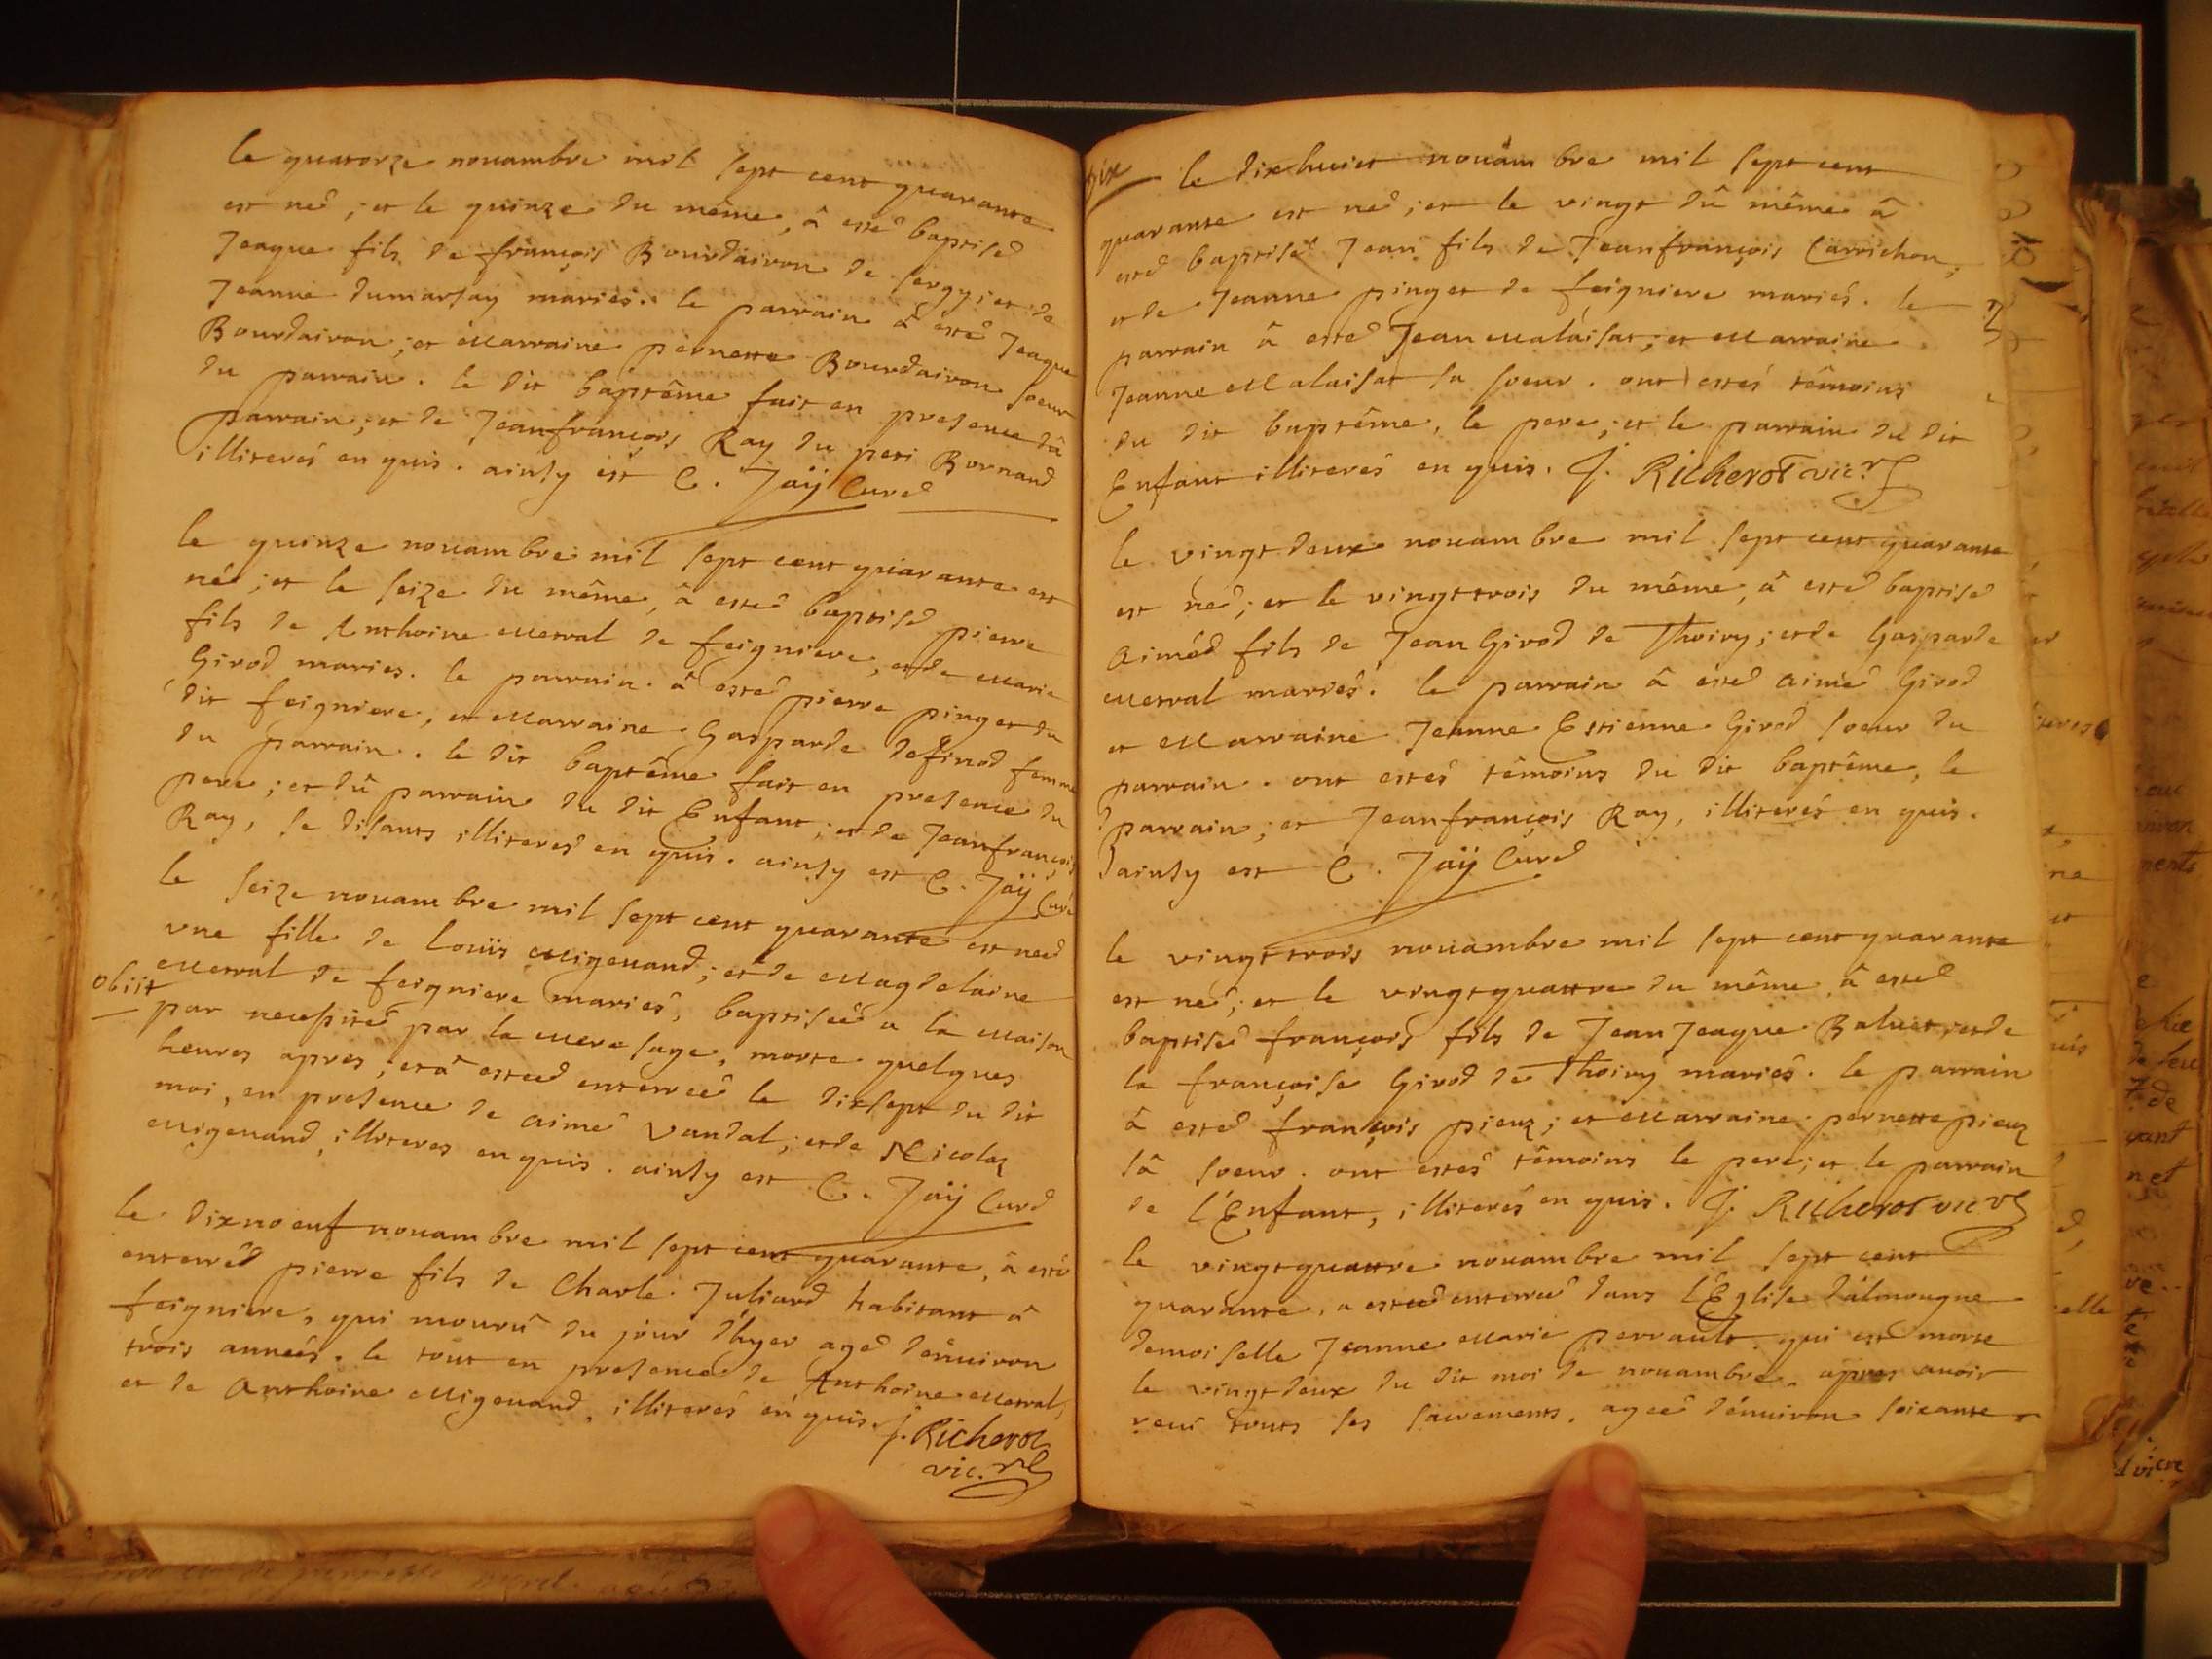 le quatorze nouambre mil sept cent quarante
est né, et le quinze du même, â esté baptisé
Jeaque fils de françois Bourdairon de sergy; et de
Jeanne dumarsay mariés. le parrain â esté Jeaque
Bourdairon; et Marraine pernette Bourdairon soeur
du parrain. le dit baptême fait en presence dû
parrain; et de Jeanfrançois Ray du peti Bornand
illiterés enquis. ainsy est C. Jaÿ Curé
le quinze nouambre mil sept cent quarante est
né; et le seize du même, â esté baptisé pierre
fils de Anthoine Merval de feigniere, et de Marie
Girod mariés. le parrain â esté pierre pinget du
dit feigniere, et Marraine Gasparde Definod femme
du parrain. le dit baptême fait en presence du
pere; et dû parrain du dit Enfant; et de Jeanfrançois
Ray, se disants illiterés enquis. ainsy est C. Jaÿ Curé
le seize nouambre mil sept cent quarante est neé
vne fille de Louïs Migeuand; et de Magdelaine
Merval de feigniere mariés, baptiseé a la Maison
obiit
par necessité par la Mere sage, morte quelques
heures apres; et â esteé enterreé le dixsept du dit
moi, en presence de aimé Vandal; et de Nicolaz
Migeuand, illiteres enquis. ainsy est C. Jaÿ Curé
le dixnoeuf nouambre mil sept cent quarante, â esté
enterré pierre fils de Charle Juliard habitant â
feigniere, qui mourû du jour d'hyer agé dénuiron
trois anneés. le tout en presence de Anthoine Merval,
et de Anthoine Migeuand, illiterés enquis. J. Richerot
vic.re
dix le dixhuict nouambre mil sept cent
quarante est né; et le vingt dû même â
esté baptisé Jean fils de Jeanfrançois Carrichon,
et de Jeanne pinget de feigniere mariés. le
parrain â esté Jean Malaisat; et Marraine
Jeanne Malaisat sa soeur. ont estés têmoins
du dit baptême, le pere; et le parrain du dit
Enfant illiterés enquis. J. Richerot vic.re
le vingtdeux nouambre mil sept cent quarante
est né; et le vingttrois du même, â esté baptisé
Aimé fils de Jean Girod de Thoiry; et de Gasparde
Merval mariés. le parrain â esté aimé Girod
et Marraine Jeanne Estienne Girod soeur du
parrain. ont estés têmoins du dit baptême, le
parrain; et Jeanfrançois Ray, illiterés enquis.
ainsy est C. Jaÿ Curé
le vingttrois nouambre mil sept cent quarante
est né; et le vingtquattre du même â esté
baptisé françois fils de Jean Jeaque Baluet, et de
la françoise Girod de Thoiry mariés. le parrain
â esté françois pieuz; et Marraine pernette pieuz
sâ soeur. ont estés têmoins le pere; et le parrain
de l'Enfant, illiterés enquis. J. Richerot vic re
le vingtquattre nouambre mil sept cent
quarante, a esteé enterreé dans l'Eglise dálmougne
demoiselle Jeanne Marie perrault qui est morte
le vingtdeux du dit moi de nouambre, apres auoir
receu touts ses sacrements, ageé dénuiron soixante